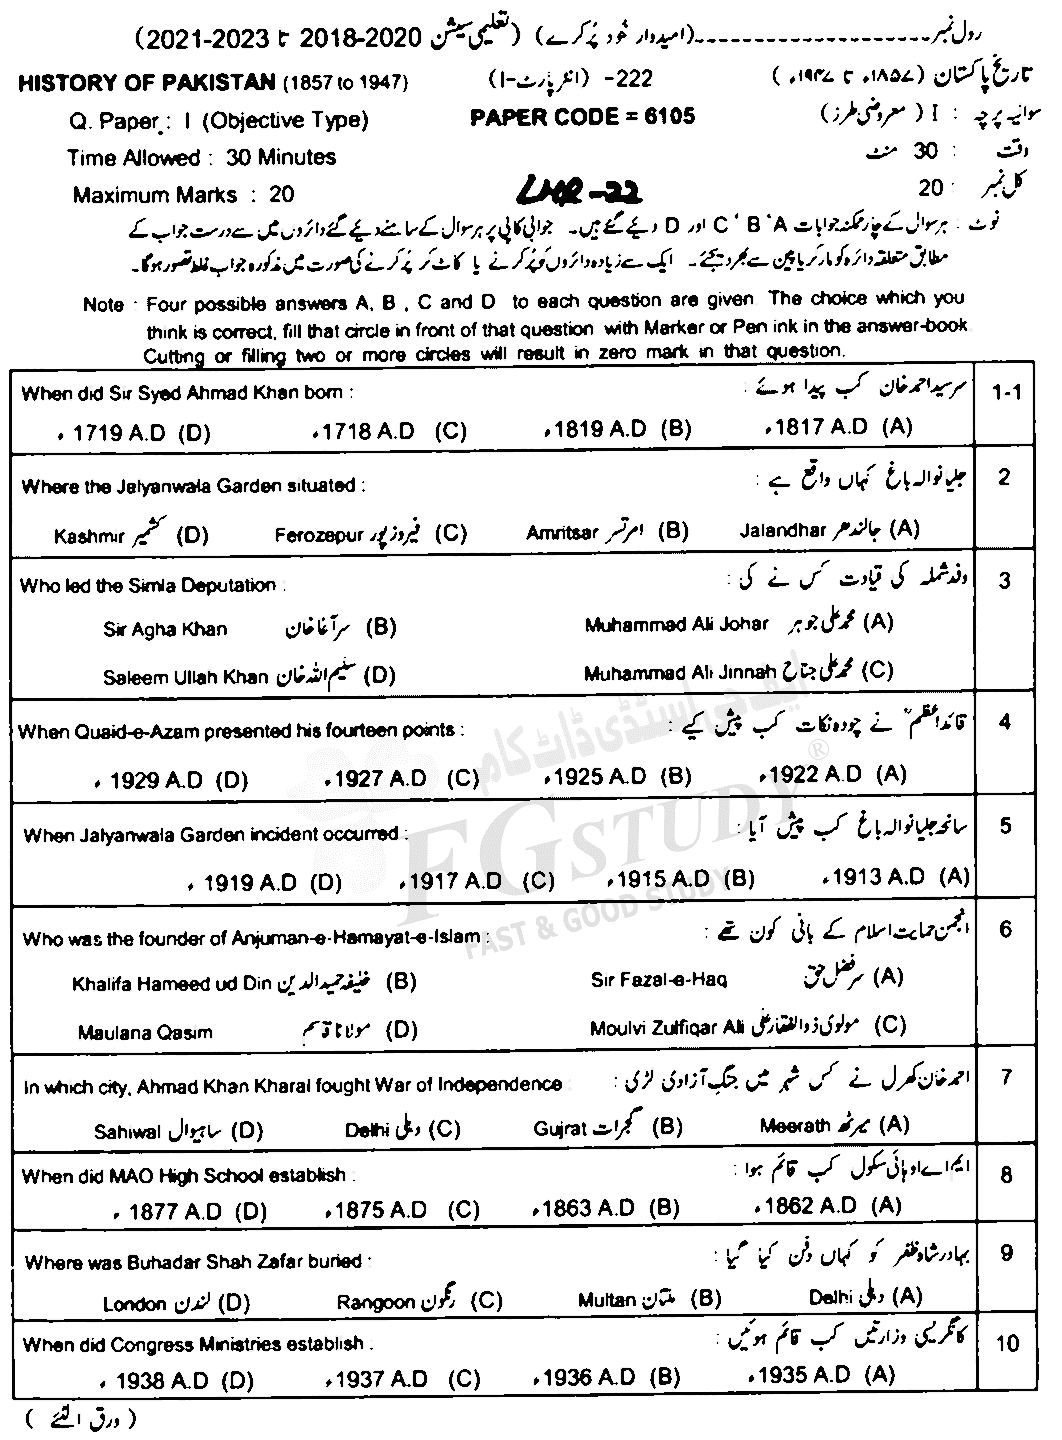 رول نمبر --------------------(امیدوار خود پُر کرے) (تعلیمی سیشن 2020-2018 تا 2023-2021)
HISTORY OF PAKISTAN (1857 to 1947) (انٹر پارٹ-I) -222 تاریخ پاکستان (۱۸۵۷ء تا ۱۹۴۷ء)
Q. Paper : I (Objective Type) PAPER CODE = 6105 سوالیہ پرچہ : I (معروضی طرز)
Time Allowed : 30 Minutes وقت : 30 منٹ
Maximum Marks : 20 LHR-22 کل نمبر : 20
نوٹ : ہر سوال کے چار ممکنہ جوابات A ' B ' C اور D دیئے گئے ہیں۔ جوابی کاپی پر ہر سوال کے سامنے دیئے گئے دائروں میں سے درست جواب کے
مطابق متعلقہ دائرہ کو مارکر یا پین سے بھر دیجئے۔ ایک سے زیادہ دائروں کو پُر کرنے یا کاٹ کر پُر کرنے کی صورت میں مذکورہ جواب غلط تصور ہوگا۔
Note : Four possible answers A, B , C and D to each question are given. The choice which you
think is correct, fill that circle in front of that question with Marker or Pen ink in the answer-book.
Cutting or filling two or more circles will result in zero mark in that question.
When did Sir Syed Ahmad Khan born : سرسید احمد خان کب پیدا ہوئے : 1-1
، 1719 A.D (D) ،1718 A.D (C) ،1819 A.D (B) ،1817 A.D (A)
Where the Jelyanwala Garden situated : جلیانوالہ باغ کہاں واقع ہے : 2
Kashmir کشمیر (D) Ferozepur فیروز پور (C) Amritsar امرتسر (B) Jalandhar جالندھر (A)
Who led the Simla Deputation : وفد شملہ کی قیادت کس نے کی : 3
Sir Agha Khan سر آغا خان (B) Muhammad Ali Johar محمد علی جوہر (A)
Saleem Ullah Khan سلیم اللہ خان (D) Muhammad Ali Jinnah محمد علی جناح (C)
When Quaid-e-Azam presented his fourteen points : قائداعظمؒ نے چودہ نکات کب پیش کیے : 4
، 1929 A.D (D) ،1927 A.D (C) ،1925 A.D (B) ،1922 A.D (A)
When Jalyanwala Garden incident occurred : سانحہ جلیانوالہ باغ کب پیش آیا : 5
، 1919 A.D (D) ،1917 A.D (C) ،1915 A.D (B) ،1913 A.D (A)
Who was the founder of Anjuman-e-Hamayat-e-Islam : انجمن حمایت اسلام کے بانی کون تھے : 6
Khalifa Hameed ud Din خلیفہ حمید الدین (B) Sir Fazal-e-Haq سر فضل حق (A)
Maulana Qasim مولانا قاسم (D) Moulvi Zulfiqar Ali مولوی ذوالفقار علی (C)
In which city, Ahmad Khan Kharal fought War of Independence : احمد خان کھرل نے کس شہر میں جنگِ آزادی لڑی : 7
Sahiwal ساہیوال (D) Delhi دہلی (C) Gujrat گجرات (B) Meerath میرٹھ (A)
When did MAO High School establish : ایم اے او ہائی سکول کب قائم ہوا : 8
، 1877 A.D (D) ،1875 A.D (C) ،1863 A.D (B) ،1862 A.D (A)
Where was Buhadar Shah Zafar buried : بہادر شاہ ظفر کو کہاں دفن کیا گیا : 9
London لندن (D) Rangoon رنگون (C) Multan ملتان (B) Delhi دہلی (A)
When did Congress Ministries establish : کانگریسی وزارتیں کب قائم ہوئیں : 10
، 1938 A.D (D) ،1937 A.D (C) ،1936 A.D (B) ،1935 A.D (A)
(ورق الٹئے)
ایف جی اسٹڈی ڈاٹ کام
FG STUDY ®
FAST & GOOD STUDY